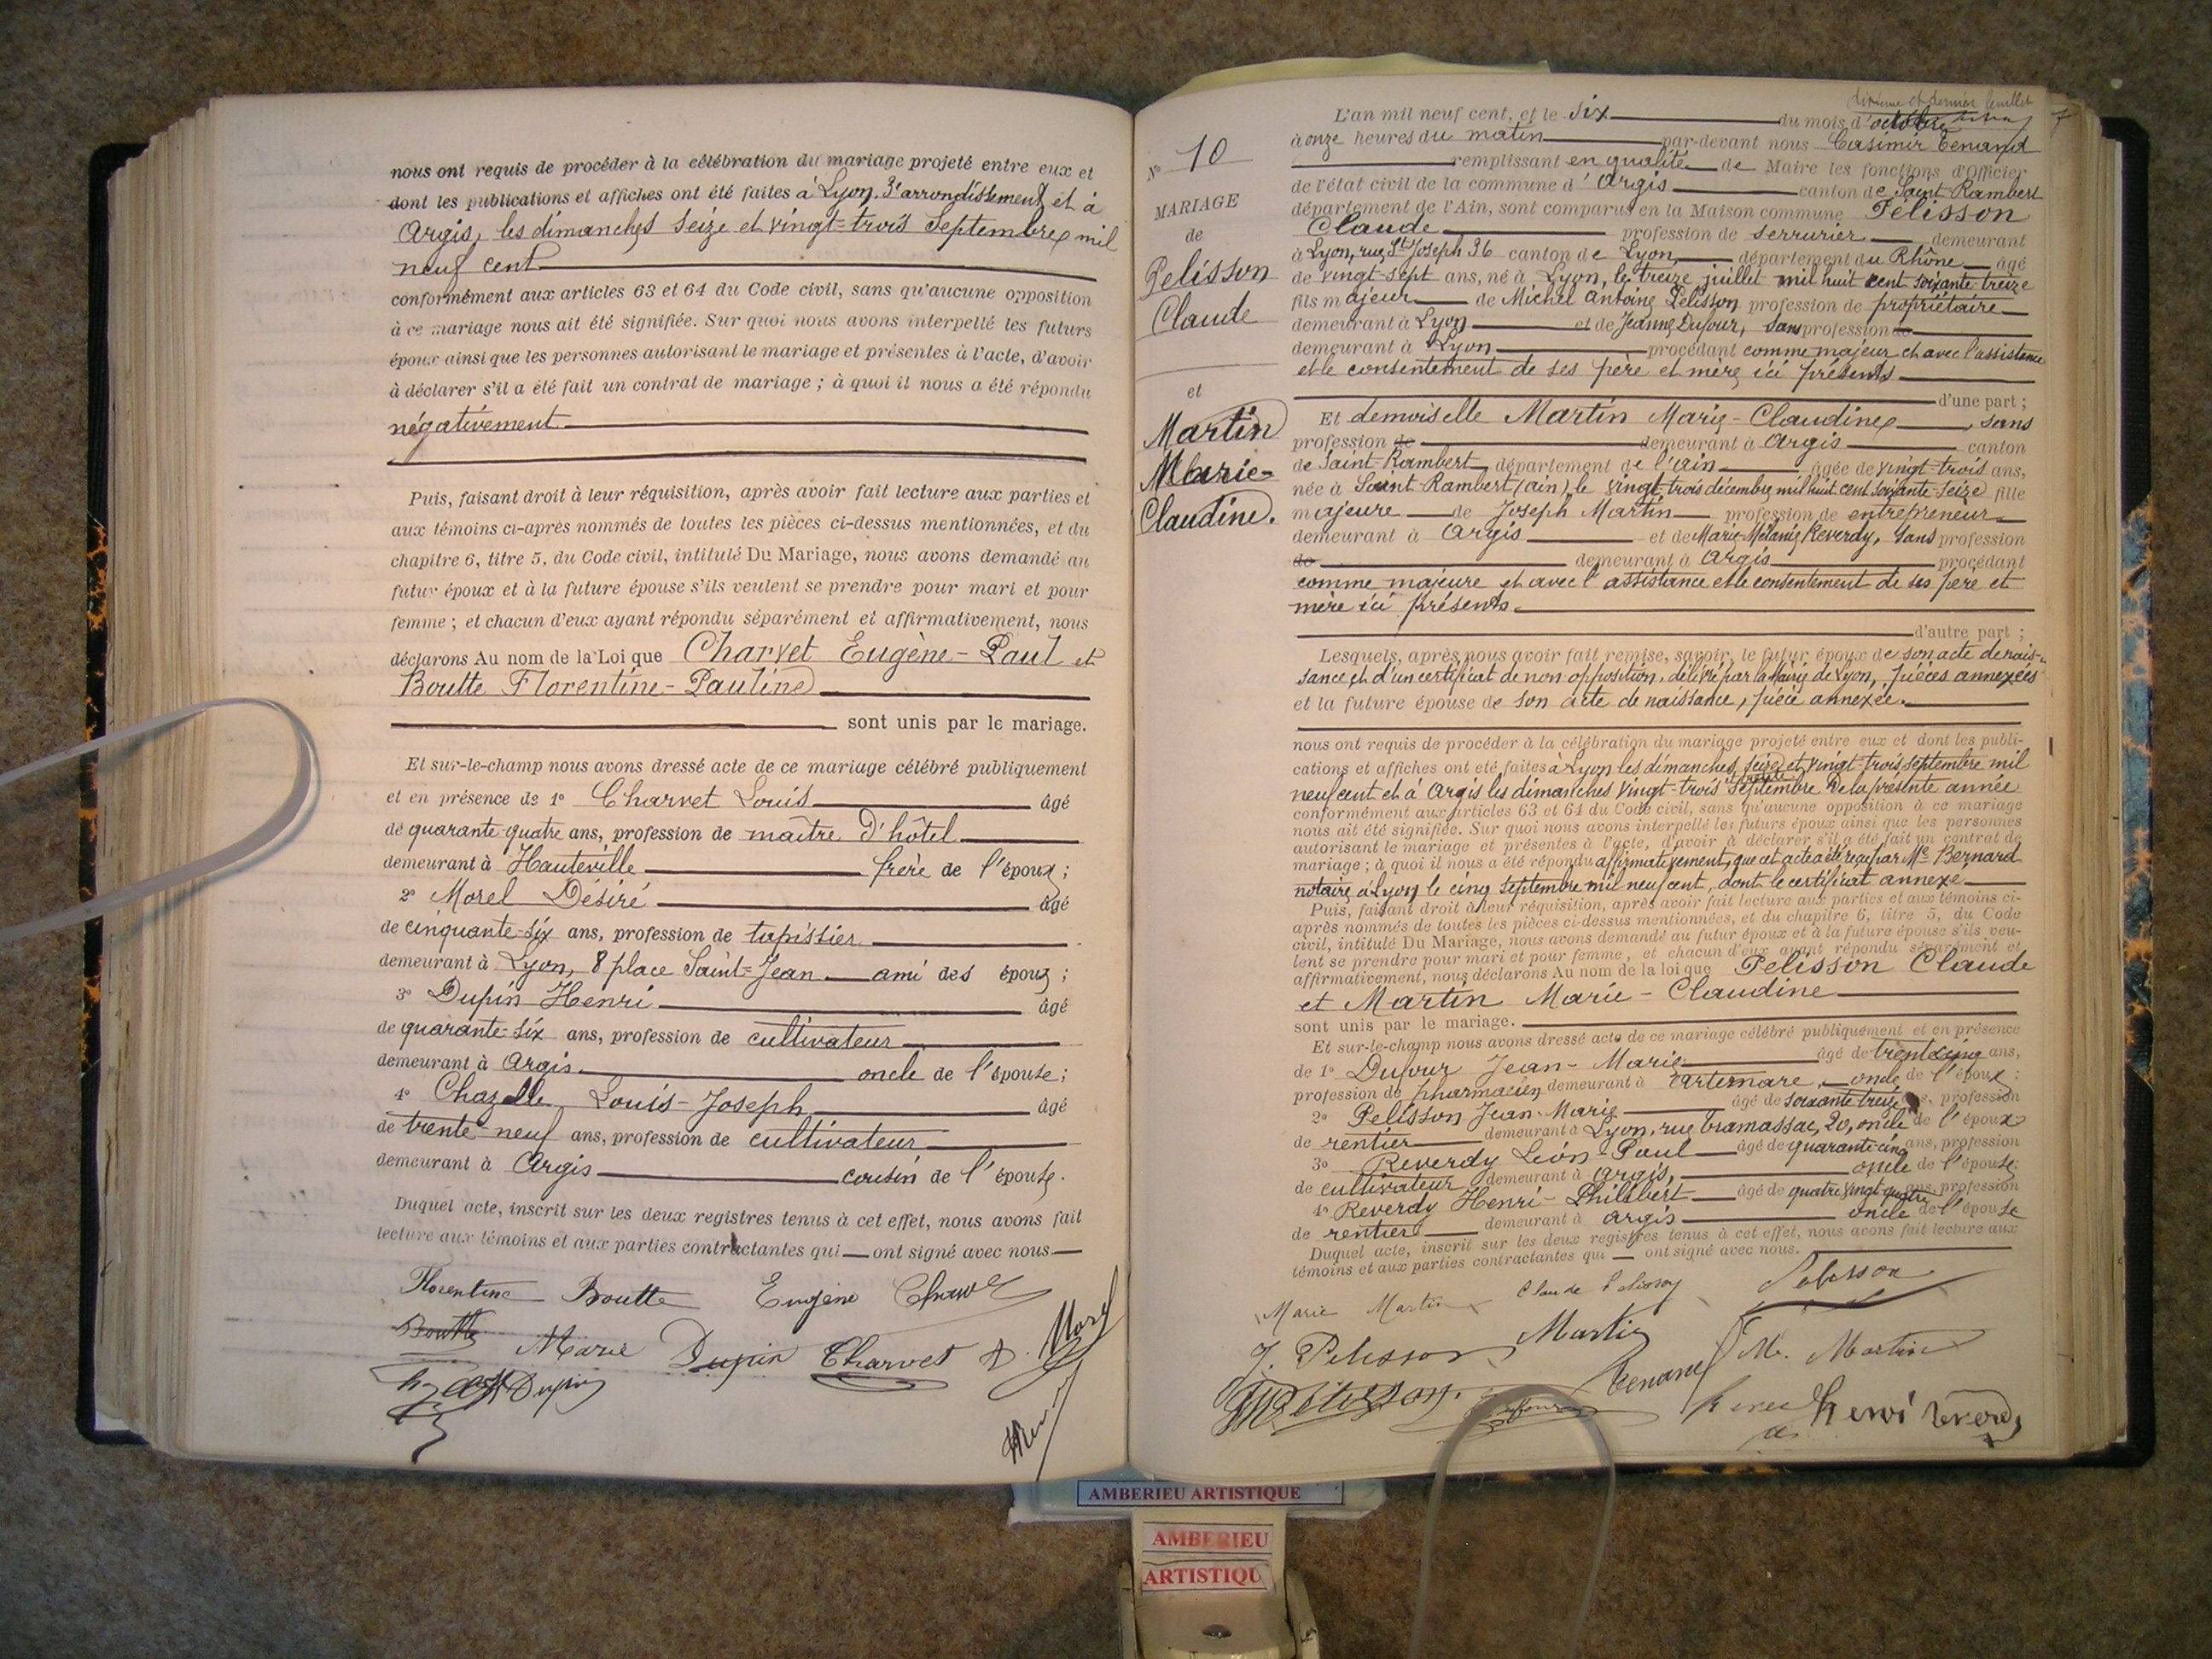 nous ont requis de procéder à la célébration du mariage projeté entre eux et
dont les publications et affiches ont été faites à Lyon, 3e arrondissement, et à
Argis, les dimanches seize et vingt-trois Septembre mil
neuf cent
conformément aux articles 63 et 64 du Code civil, sans qu'aucune opposition
à ce mariage nous ait été signifiée. Sur quoi nous avons interpellé les futurs
époux ainsi que les personnes autorisant le mariage et présentes à l'acte, d'avoir
à déclarer s'il a été fait un contrat de mariage ; à quoi il nous a été répondu
négativement
Puis, faisant droit à leur réquisition, après avoir fait lecture aux parties et
aux témoins ci-après nommés de toutes les pièces ci-dessus mentionnées, et du
chapitre 6, titre 5, du Code civil, intitulé Du Mariage, nous avons demandé au
futur époux et à la future épouse s'ils veulent se prendre pour mari et pour
femme ; et chacun d'eux ayant répondu séparément et affirmativement, nous
déclarons Au nom de la Loi que Charvet Eugène-Paul et
Boutte Florentine-Pauline
sont unis par le mariage.
Et sur-le-champ nous avons dressé acte de ce mariage célébré publiquement
et en présence de 1o Charvet Louis âgé
de quarante-quatre ans, profession de maître d'hôtel
demeurant à Hauteville frère de l'époux ;
2o Morel Désiré âgé
de cinquante-six ans, profession de tapissier
demeurant à Lyon, 8 place Saint-Jean ami des époux ;
3o Dupin Henri âgé
de quarante-six ans, profession de cultivateur
demeurant à Argis oncle de l'épouse ;
4o Chazelle Louis-Joseph âgé
de trente-neuf ans, profession de cultivateur
demeurant à Argis cousin de l'épouse.
Duquel acte, inscrit sur les deux registres tenus à cet effet, nous avons fait
lecture aux témoins et aux parties contractantes qui ont signé avec nous
Florentine Boutte Eugène Charvet
Boutte Marie Dupin Charvet D. Morel
Dupin
No 10
MARIAGE
de
Pelisson
Claude
et
Martin
Marie-
Claudine.
dixième et dernier feuillet
L'an mil neuf cent, et le six du mois d'octobre
à onze heures du matin par-devant nous Casimir Tenand
remplissant en qualité de Maire les fonctions d'Officier
de l'état civil de la commune d'Argis canton de Saint-Rambert
département de l'Ain, sont comparus en la Maison commune Pelisson
Claude profession de serrurier demeurant
à Lyon, rue St Joseph 36 canton de Lyon, département du Rhône âgé
de vingt-sept ans, né à Lyon, le treize juillet mil huit cent soixante treize
fils majeur de Michel Antoine Pelisson profession de propriétaire
demeurant à Lyon et de Jeanne Dufour, sans profession de
demeurant à Lyon procédant comme majeur et avec l'assistance
et le consentement de ses père et mère ici présents
d'une part ;
Et demoiselle Martin Marie-Claudine, sans
profession de demeurant à Argis canton
de Saint-Rambert département de l'Ain âgée de vingt-trois ans,
née à Saint-Rambert (Ain), le vingt trois décembre mil huit cent soixante-seize fille
majeure de Joseph Martin profession de entrepreneur
demeurant à Argis et de Marie-Mélanie Reverdy, sans profession
de demeurant à Argis procédant
comme majeure et avec l'assistance et le consentement de ses père et
mère ici présents.
d'autre part ;
Lesquels, après nous avoir fait remise, savoir, le futur époux de son acte de nais-
sance et d'un certificat de non opposition, délivré par la Mairie de Lyon, pièces annexées
et la future épouse de son acte de naissance, pièce annexée.
nous ont requis de procéder à la célébration du mariage projeté entre eux et dont les publi-
cations et affiches ont été faites à Lyon les dimanches seize et vingt-trois septembre mil
neuf cent et à Argis les dimanches vingt-trois et trente septembre de la présente année
conformément aux articles 63 et 64 du Code civil, sans qu'aucune opposition à ce mariage
nous ait été signifiée. Sur quoi nous avons interpellé les futurs époux ainsi que les personnes
autorisant le mariage et présentes à l'acte, d'avoir à déclarer s'il a été fait un contrat de
mariage ; à quoi il nous a été répondu affirmativement, que cet acte a été reçu par Me Bernard
notaire à Lyon le cinq septembre mil neuf cent, dont le certificat annexe
Puis, faisant droit à leur réquisition, après avoir fait lecture aux parties et aux témoins ci-
après nommés de toutes les pièces ci-dessus mentionnées, et du chapitre 6, titre 5, du Code
civil, intitulé Du Mariage, nous avons demandé au futur époux et à la future épouse s'ils veu-
lent se prendre pour mari et pour femme, et chacun d'eux ayant répondu séparément et
affirmativement, nous déclarons Au nom de la loi que Pelisson Claude
et Martin Marie-Claudine
sont unis par le mariage.
Et sur-le-champ nous avons dressé acte de ce mariage célébré publiquement et en présence
de 1o Dufour Jean-Marie âgé de trente cinq ans,
profession de pharmacien demeurant à oncle de l'époux ;
2o Pelisson Jean-Marie âgé de soixante treize ans, profession
de rentier demeurant à Lyon, rue Tramassac, 20, oncle de l'époux
3o Reverdy Léon-Paul âgé de quarante-cinq ans, profession
de cultivateur demeurant à Argis, oncle de l'épouse,
4o Reverdy Henri-Philibert âgé de quatre vingt-quatre ans, profession
de rentier demeurant à Argis oncle de l'épouse
Duquel acte, inscrit sur les deux registres tenus à cet effet, nous avons fait lecture aux
témoins et aux parties contractantes qui ont signé avec nous.
Marie Martin Claude Pelisson Pelisson
J. Pelisson Martin M. Martin
Pelisson Dufour Tenand henri Reverdy
AMBERIEU ARTISTIQUE
AMBERIEU
ARTISTIQU